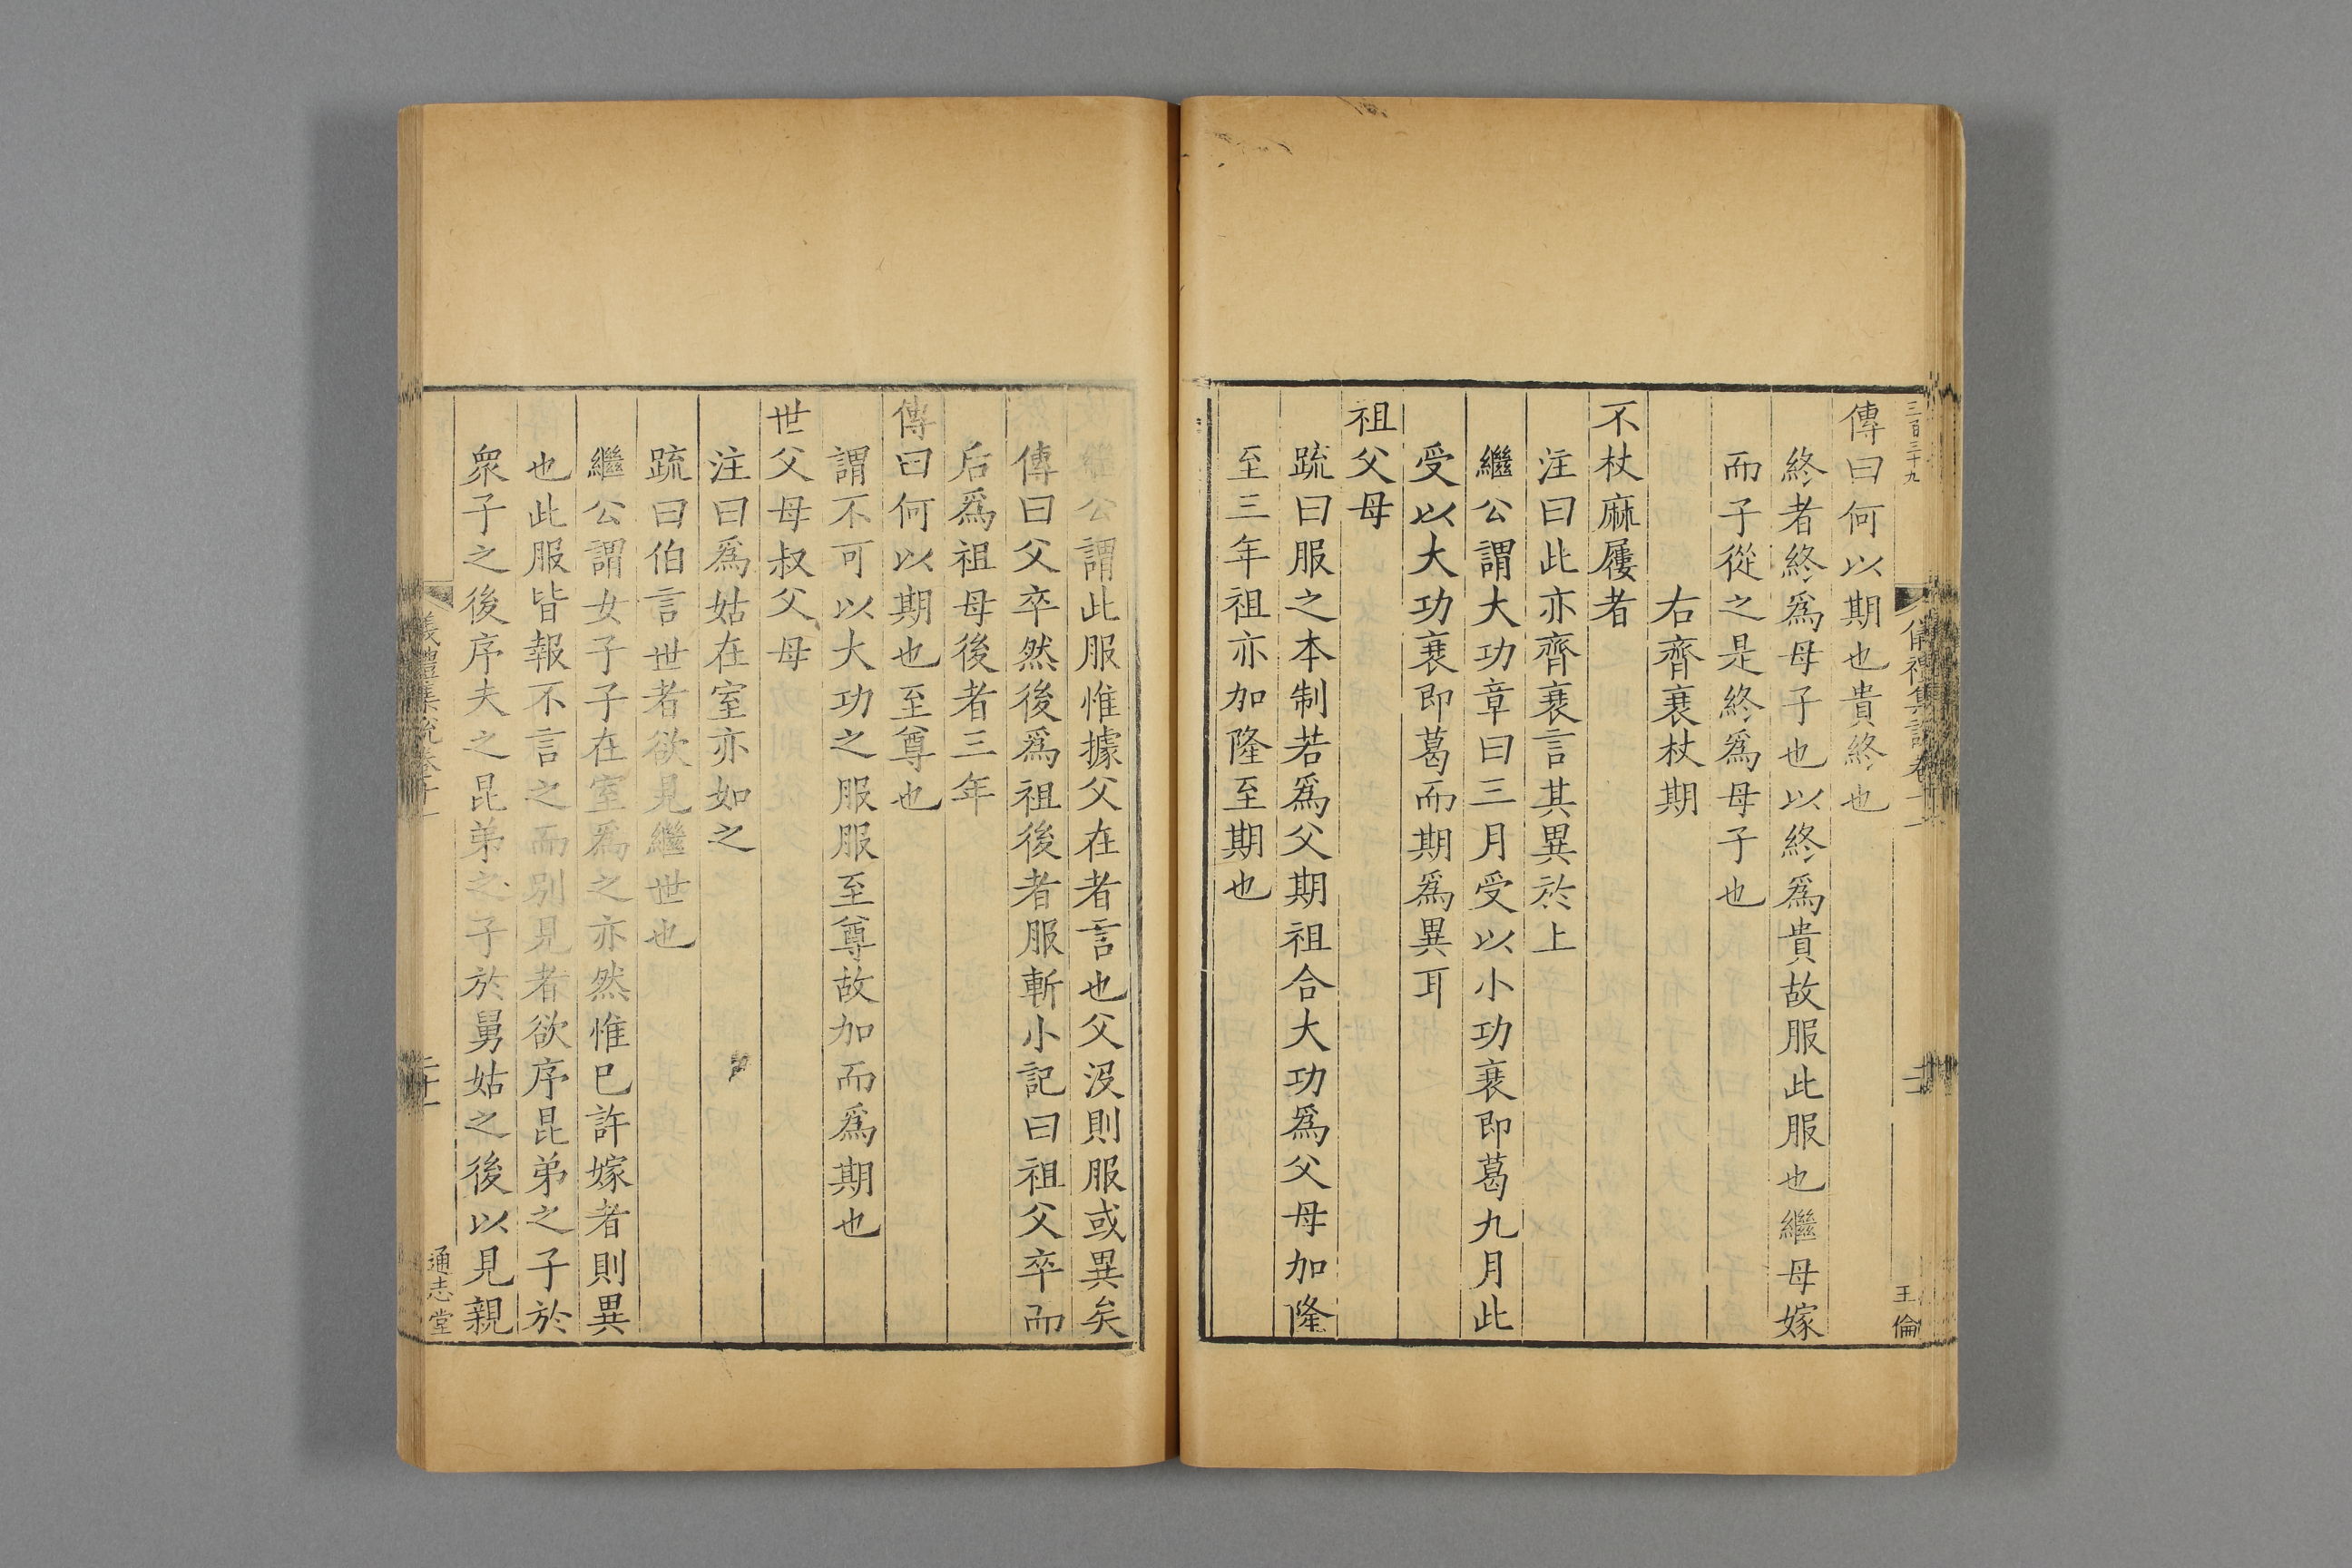 三百三十九
儀禮集說卷十一
王倫
傳曰何以期也貴終也
終者終爲母子也以終爲貴故服此服也繼母嫁
而子從之是終爲母子也
右齊衰杖期
不杖麻屨者
注曰此亦齊衰言其異於上
繼公謂大功章曰三月受以小功衰即葛九月此
受以大功衰即葛而期爲異耳
祖父母
疏曰服之本制若爲父期祖合大功爲父母加隆
至三年祖亦加隆至期也
繼公謂此服惟據父在者言也父沒則服或異矣
傳曰父卒然後爲祖後者服斬小記曰祖父卒而
后爲祖母後者三年
傳曰何以期也至尊也
謂不可以大功之服服至尊故加而爲期也
世父母叔父母
注曰爲姑在室亦如之
疏曰伯言世者欲見繼世也
繼公謂女子子在室爲之亦然惟巳許嫁者則異
也此服皆報不言之而別見者欲序昆弟之子於
衆子之後序夫之昆弟之子於舅姑之後以見親
儀禮集說卷十一
二十一
通志堂